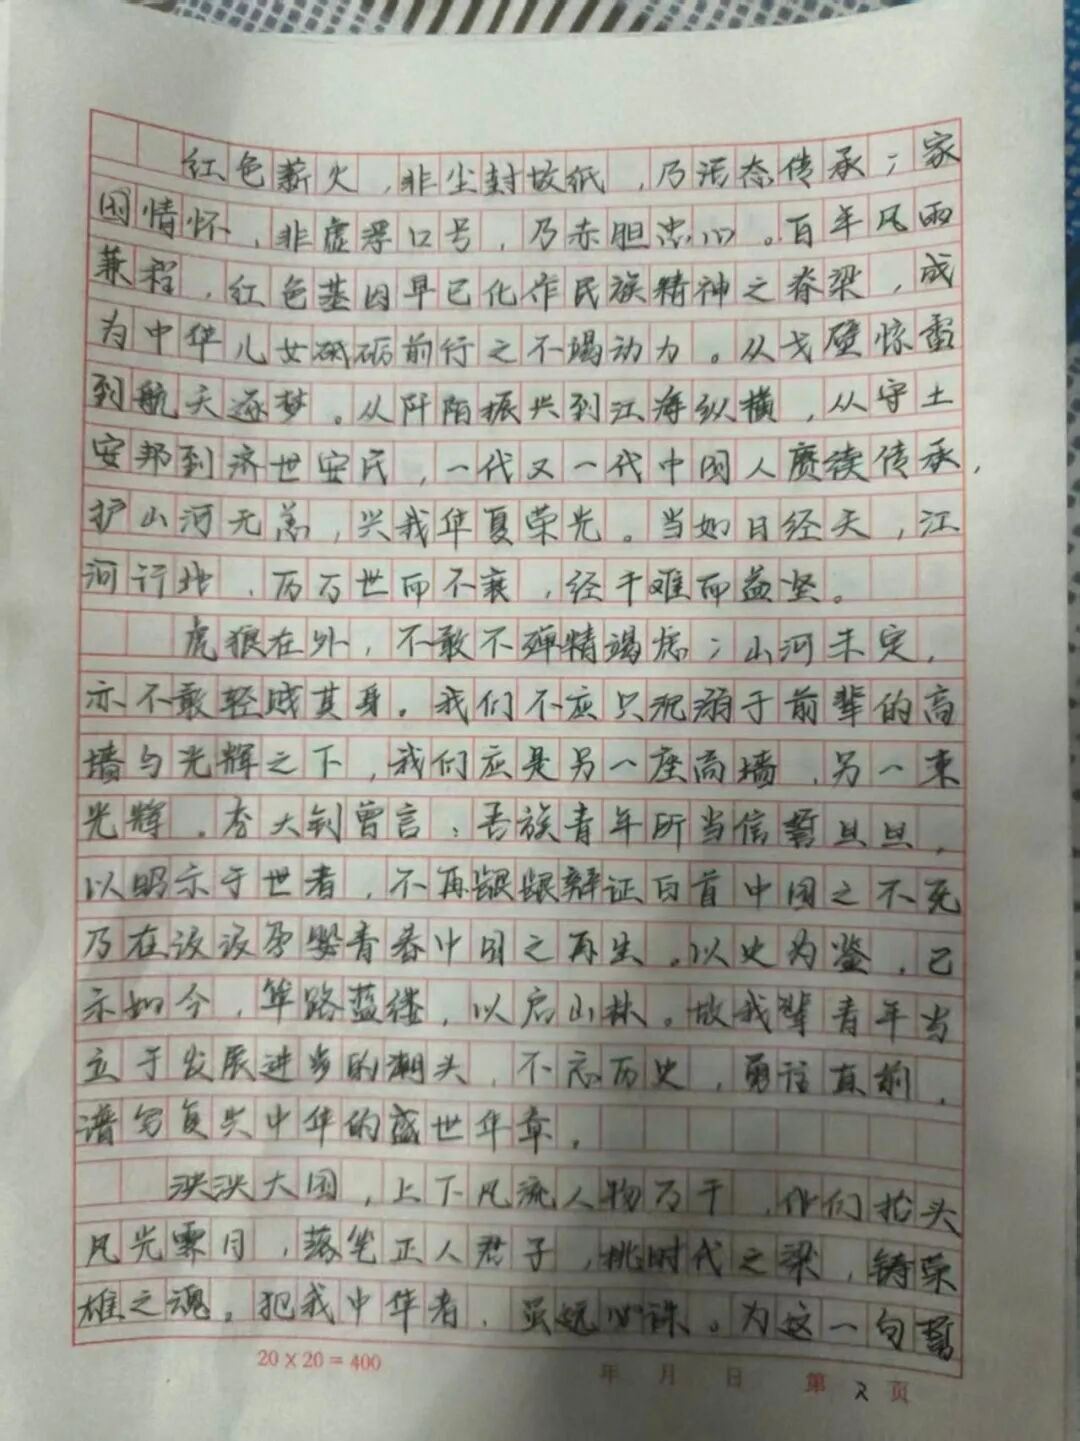 红色薪火，非尘封故纸，乃活态传承；家
国情怀，非虚浮口号，乃赤胆忠心。百年风雨
兼程，红色基因早已化作民族精神之脊梁，成
为中华儿女砥砺前行之不竭动力。从戈壁惊雷
到航天逐梦。从阡陌振兴到江海纵横，从守土
安邦到济世安民，一代又一代中国人赓续传承，
护山河无恙，兴我华夏荣光。当如日经天，江
河行地，历万世而不衰，经千难而益坚。
虎狼在外，不敢不殚精竭虑；山河未定，
亦不敢轻贱其身。我们不应只沉溺于前辈的高
墙与光辉之下，我们应是另一座高墙，另一束
光辉。李大钊曾言：吾族青年所当信誓旦旦，
以昭示于世者，不再龈龈辩证白首中国之不死
乃在汲汲孕婴青春中国之再生。以史为鉴，已
示如今，筚路蓝缕，以启山林。故我辈青年当
立于发展进步的潮头，不忘历史，勇往直前，
谱写复兴中华的盛世华章。
泱泱大国，上下风流人物万千，他们抬头
风光霁月，落笔正人君子，挑时代之梁，铸荣
雄之魂。犯我中华者，虽远必诛。为这一句誓
20×20=400
年 月 日 第 2 页